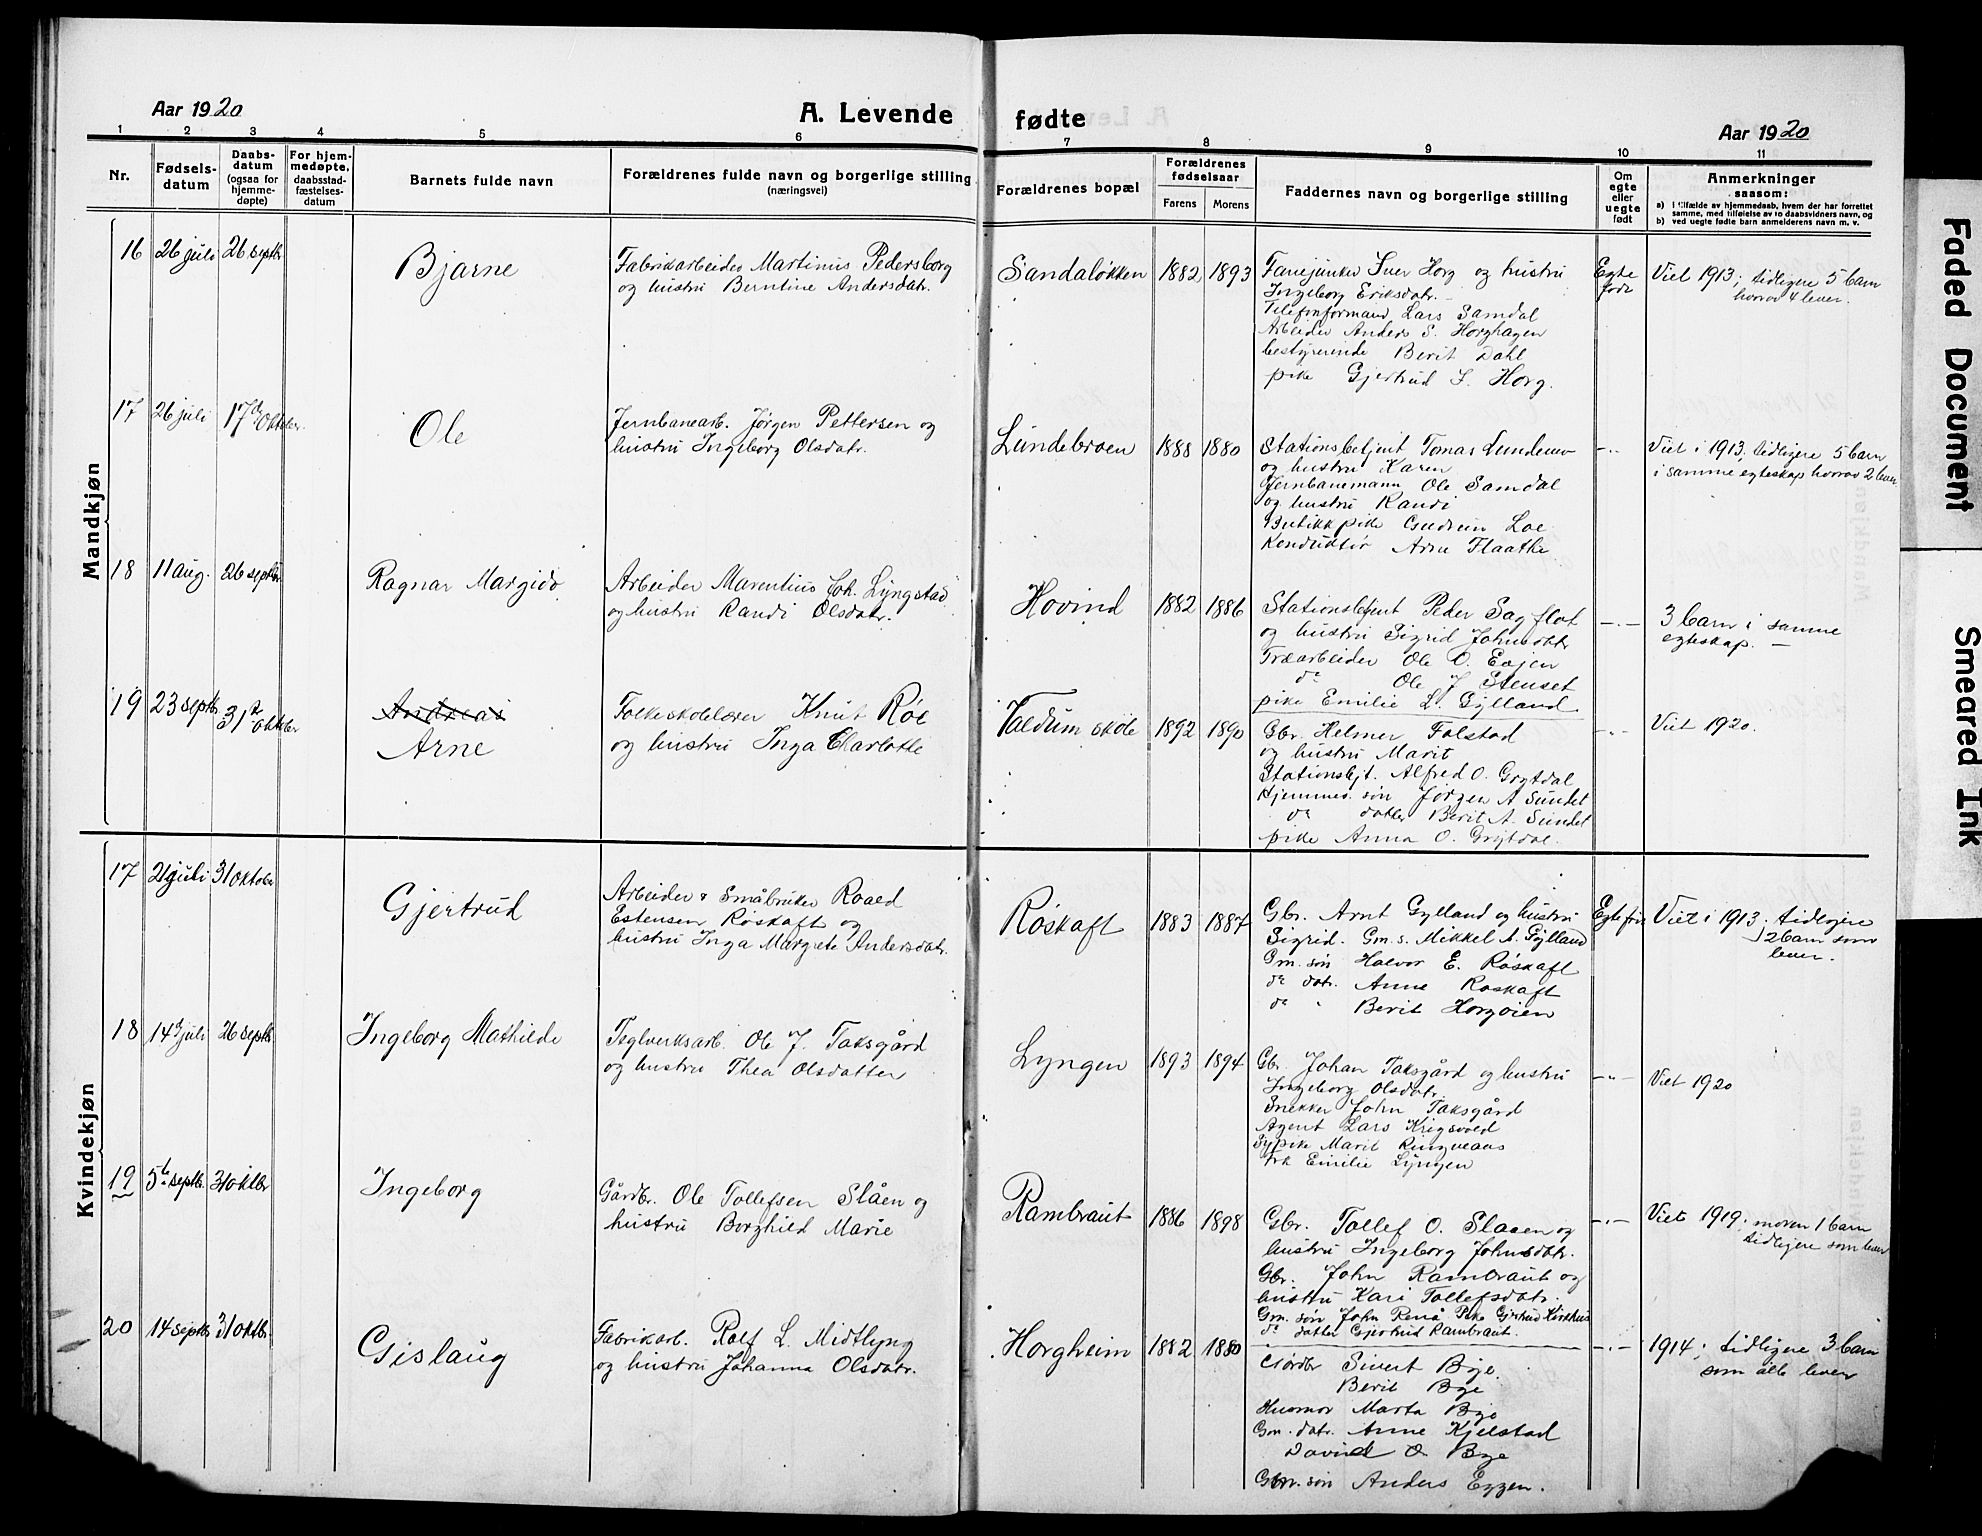 Aar 1920
A. Levende
fødte
Aar 1920
1 2 3 4 5 6 7 8 9 10 11
Nr.
Fødsels-
datum
Daabs-
datum
(ogsaa for
hjemme-
døpte)
For hjem-
medøpte,
daabsstad-
fæstelses-
datum
Barnets fulde navn
Forældrenes fulde navn og borgerlige stilling
(næringsvei)
Forældrenes bopæl
Forældrenes
fødselsaar
Farens Morens
Faddernes navn og borgerlige stilling
Om
egte
eller
uegte
født
Anmerkninger
saasom:
a) i tilfælde av hjemmedaab, hvem der har forrettet
samme, med tilføielse av to daabsvidners navn, og
b) ved uegte fødte barn anmelderens navn m. v.
Mandkjøn
16 26 juli 26 septbr
Bjarne
Fabrikarbeider Martinus Pedersborg
og hustru Berntine Andersdatr.
Sandaløkken 1882 1893
Fanejunker Iver Horg og hustru
Ingeborg Eriksdatr.
Telefonformand Lars Samdal
Arbeider Anders S. Horghagen
bestyrerinde Berit Dahl
pike Gjertrud S. Horg.
Egte
født
Viet 1913; tidligere 5 barn
hvorav 4 lever.
17 26 juli 17de oktober
Ole
Jernbanearb. Jørgen Pettersen og
hustru Ingeborg Olsdatr.
Lundebroen 1888 1880
Stationsbetjent Tomas Lundemo
og hustru Karen
Jernbanemann Ole Samdal
og hustru Randi
Butikkpike Gudrun Loe
Konduktør Arne Flaathe
-"-
Viet i 1913; tidligere 5 barn
i samme egteskap hvorav 2 lever.
18 11 aug. 26 septbr
Ragnar Margido
Arbeider Marentius Joh. Lyngstad
og hustru Randi Olsdatr.
Hovind 1882 1886
Stationsbetjent Peder Sagflot
og hustru Sigrid Johnsdatr
Træarbeider Ole O. Evjen
do Ole J. Stenset
pike Emilie L. Gylland
-"-
3 barn i samme
egteskap. -
19 23 septbr. 31te oktober
Andreas
Arne
Folkeskolelærer Knut Røe
og hustru Inga Charlotte
Valdum skole 1892 1890
Gbr. Helmer Folstad
og hustru Marit
Stationsbjt. Alfred O. Grytdal
Hjemmev. søn Jørgen A. Sundet
do datter Berit A. Sundet
pike Anna O. Grytdal.
-"-
Viet 1920.
Kvindekjøn
17 21 juli 31 oktober
Gjertrud
Arbeider & Småbruker Roald
Estensen Røskaft og
hustru Inga Margrete Andersdatr.
Røskaft 1883 1887
Gbr. Arnt Gylland og hustru
Sigrid. Gm. s. Mikkel A. Gylland
Gm. søn Halvor E. Røskaft
do datr. Anne Røskaft
do " Berit Horgøien
Egte fød
Viet i 1913; tidligere
2 barn som
lever.
18 14 juli 26 septbr
Ingeborg Mathilde
Teglverksarb. Ole J. Taksgård
og hustru Thea Olsdatter
Lyngen 1893 1894
Gbr. Johan Taksgård og hustru
Ingeborg Olsdatr.
Snekker John Taksgård
Agent Lars Krigsvold
Sypike Marit Ringveans
Frk Emilie Lyngen
-"-
Viet 1920
19 5te septbr. 31 oktbr
Ingeborg
Gårdbr. Ole Tollefsen Slåen og
hustru Borghild Marie
Rambraut 1886 1898
Gbr. Tollef O. Slaaen og
hustru Ingeborg Johnsdatr.
Gbr. John Rambraut og
hustru Kari Tollefsdatr.
Gm. søn John Renå Pike Gjertrud Kirkhus
do datter Gjertrud Rambraut.
-"-
Viet 1919; moren 1 barn
tidligere som lever
20 14 septbr 31 oktbr.
Gislaug
Fabrikarb. Rolf L. Midtlyng
og hustru Johanna Olsdatr.
Horgheim 1882 1880
Gårdbr Sivert Bye.
Berit Bye
Husmor Marta Bye
Gm. datr. Anne Kjelstad
David O. Bye
Gbr. søn Anders Eggen.
-"-
1914; tidligere 3 barn
som alle lever
Faded Document
Smeared Ink